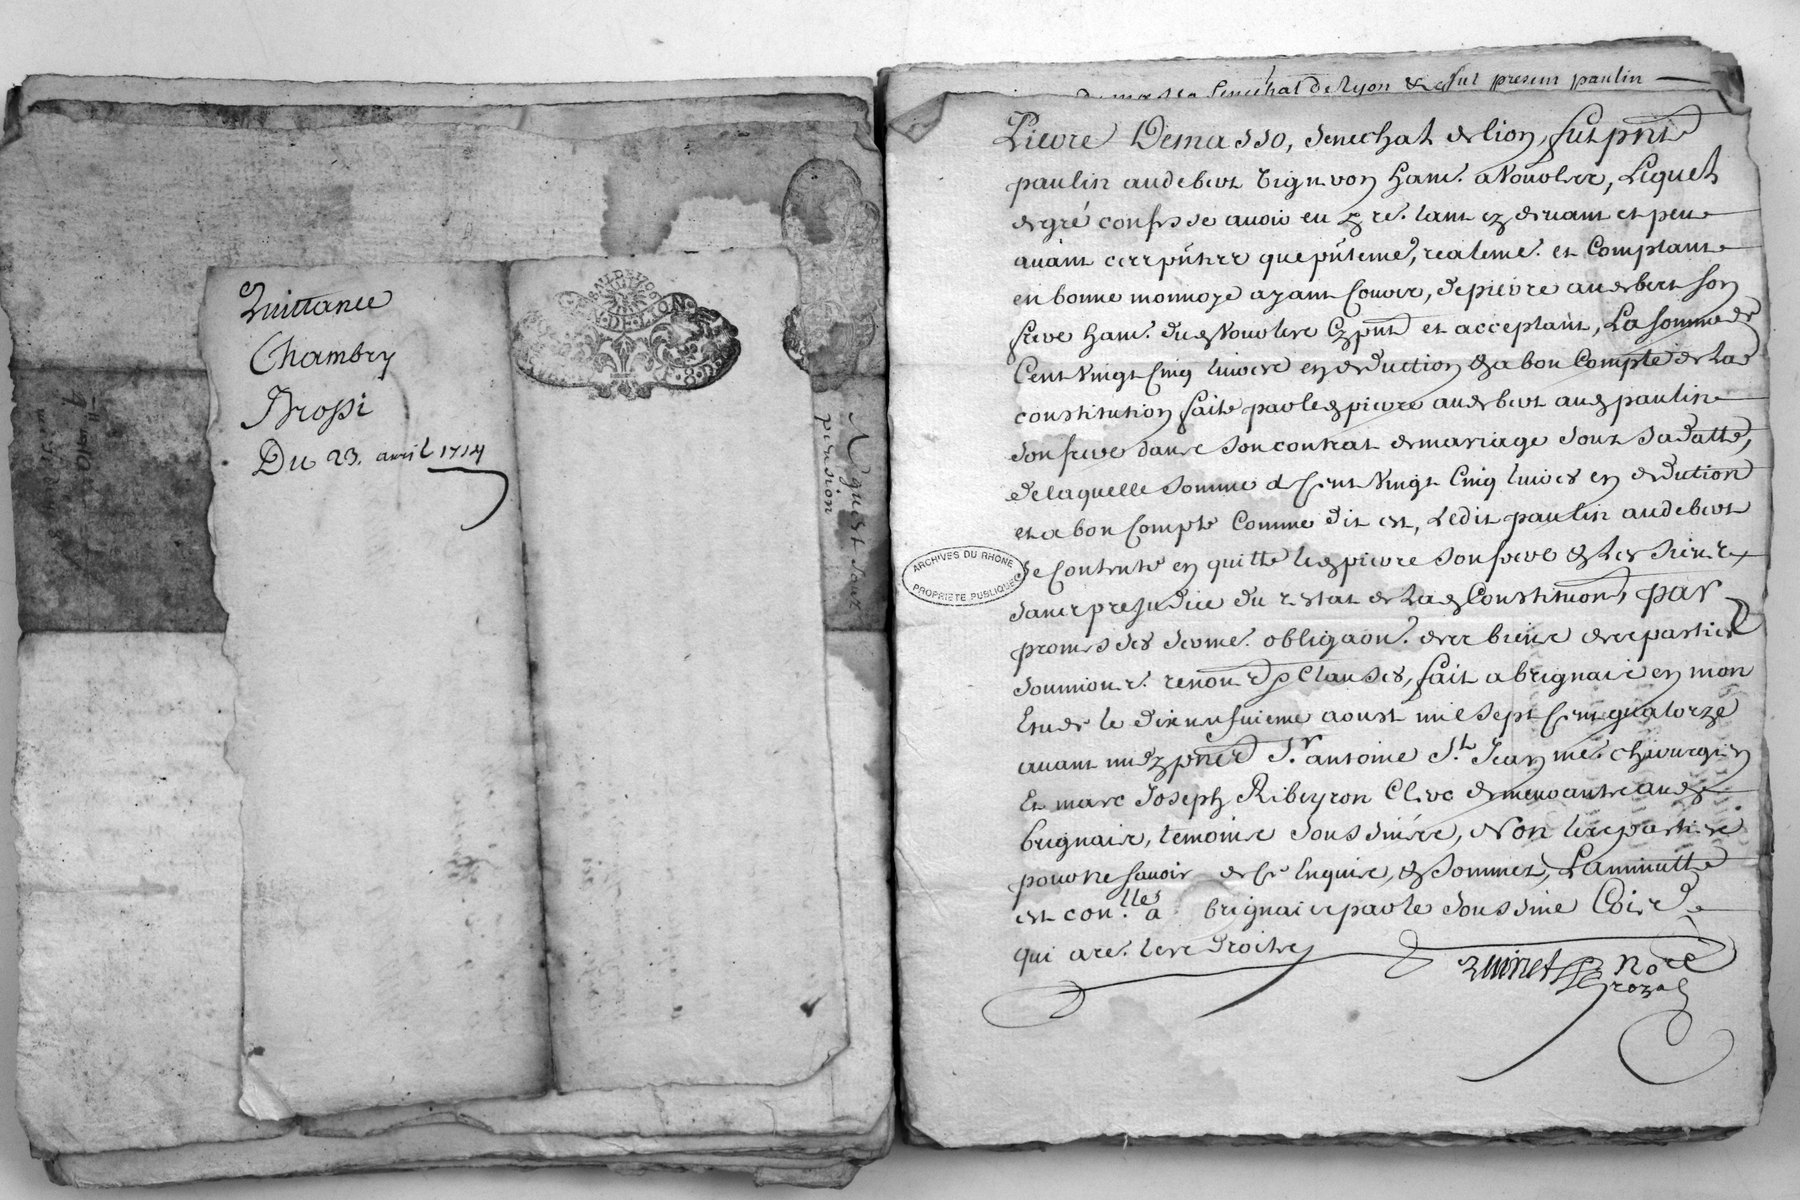 Quittance
Chambry
Brossi
Du 23. avril 1714
GN. DE. LYON
pension
senechal de Lyon & fut present paulin
Pierre Demasso, senechal de lion, fut pnt
paulin audebert vigneron hant. a Vourles, Lequel
de gré confesse avoir eu & re. tant cy devant et peu
avant ces pntes que pntemt, realemt. et Comptant
en bonne monnoye ayant Cours, de pierre audebert son
frere hant. dud Vourles Cy pnt et acceptant, La somme de
Cent vingt Cinq livres en deduction & a bon Compte de la
constitution faite par led pierre audebert aud paulin
son frere dans son contrat de mariage sous sa datte,
de laquelle somme de Cent vingt Cinq livres en dedution
et a bon Compte Comme dit est, Ledit paulin audebert
se Contente en quitte led pierre son frere & les siens
sans prejudice du restat de lad Constitution, par
promesses sermt. obligaon. de ses biens desd parties
soumions. renon & clauses, fait a brignais en mon
Etude le dixneufvieme aoust mil sept Cent quatorze
avant midy pnts Sr. antoine St. Jean me. chirurgien
Et marc Joseph Ribeyron Clerc demeurants aud
brignais, temoins soussinés, Non les parties
pour ne sçavoir de ce Enquis, & sommés, La minutte
est conllee. a brignais par le soussiné
qui a re. les droits
ARCHIVES DU RHONE
PROPRIETE PUBLIQUE
nore
rozal